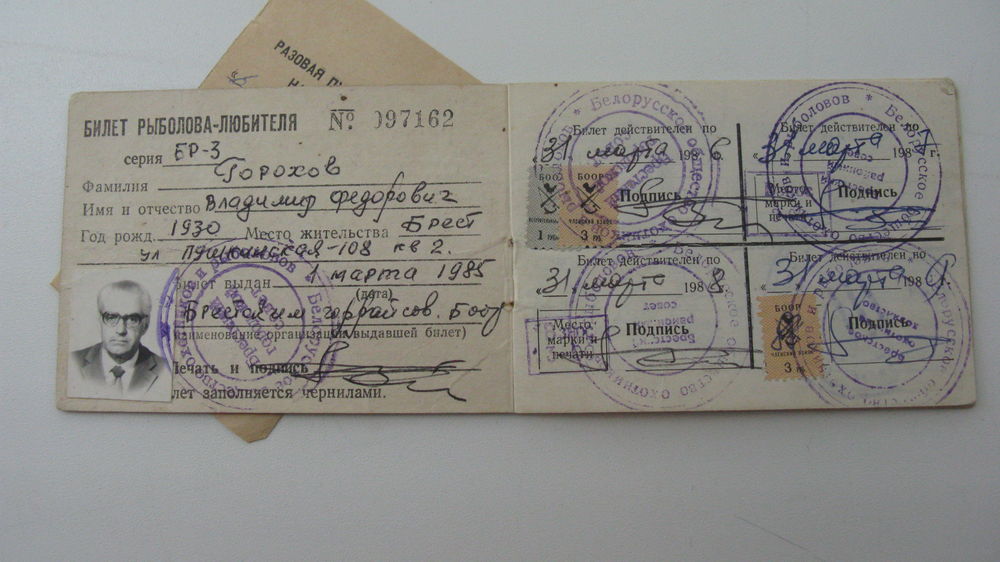 РАЗОВАЯ
БИЛЕТ РЫБОЛОВА-ЛЮБИТЕЛЯ № 097162
серия БР-3
Фамилия Горохов
Имя и отчество Владимир Федорович
Год рожд. 1930 Место жительства Брест
ул Пушкинская-108 кв 2.
билет выдан 1 марта 1985
(дата)
Брестским БООР
наименование организации, выдавшей билет)
Печать и подпись
лет заполняется чернилами.
Билет действителен по
31 марта 1986
БООР БООР
Подпись
1 р. 3 р.
Билет действителен по
31 марта 1987 г.
Место марки и печати
Подпись
Билет действителен по
31 марта 1988
Место марки и печати
Подпись
Билет действителен по
31 марта 198
БООР
Подпись
3 р.
Белорусское общество охотников и рыболовов